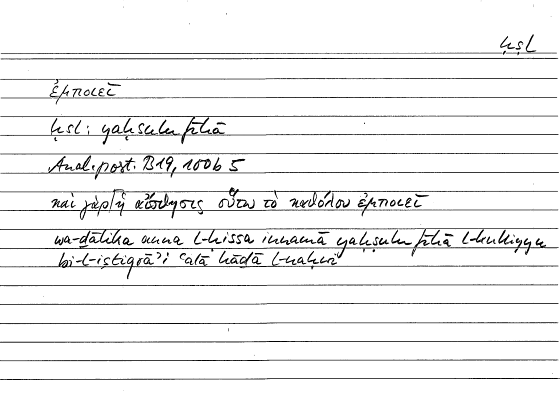 ḥṣl
ἐμποιεῖ
ḥṣl: yaḥṣulu fīhā
Anal. post. B19, 100b 5
καὶ γὰρ ἡ αἴσθησις οὕτω τὸ καθόλου ἐμποιεῖ
wa-ḏālika anna l-ḥissa innamā yaḥṣulu fīhā l-kullīyu
bi-l-istiqrāʾi ʿalā hāḏā l-naḥwi